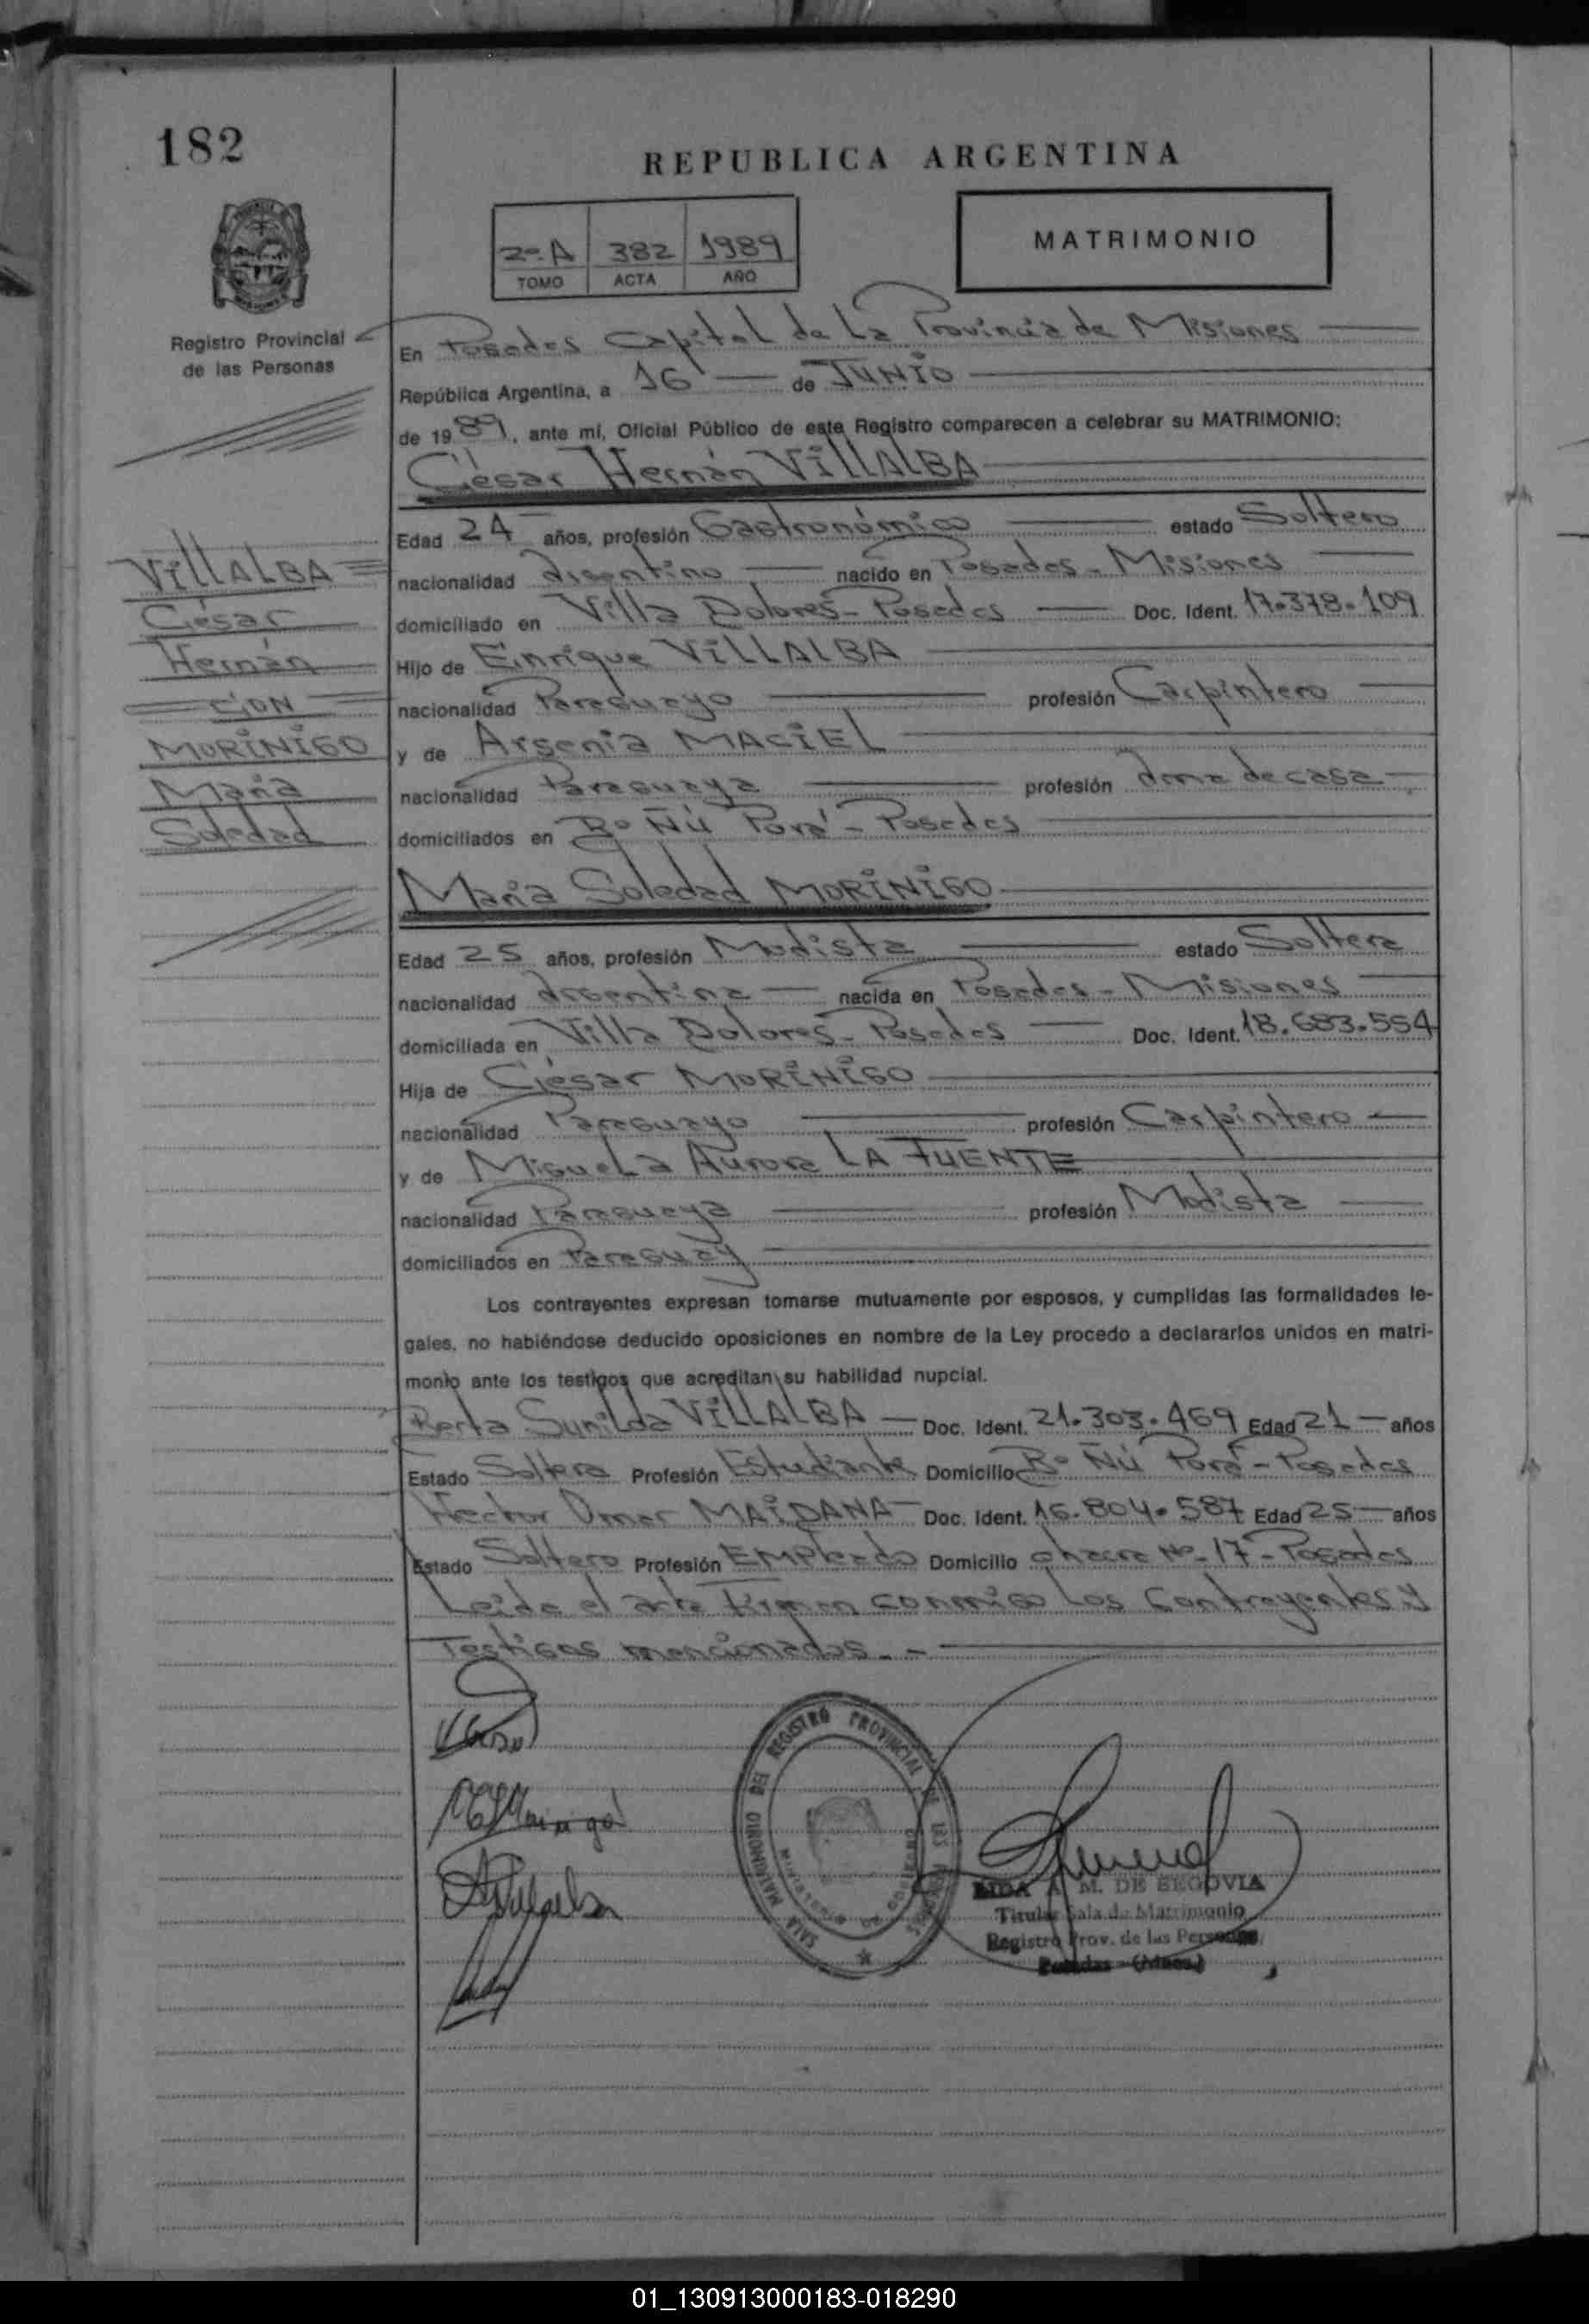 182
REPUBLICA ARGENTINA
2º A 382 1989
TOMO ACTA AÑO
MATRIMONIO
Registro Provincial
de las Personas
En Posadas Capital de La Provincia de Misiones
República Argentina, a 16 de JUNIO
de 1989, ante mi, Oficial Público de este Registro comparecen a celebrar su MATRIMONIO:
César Hernán VILLALBA
Edad 24 años, profesión Gastronómico estado Soltero
nacionalidad Argentino nacido en Posadas - Misiones
domiciliado en Villa Dolores - Posadas Doc. Ident. 17.378.109
Hijo de Enrique VILLALBA
nacionalidad Paraguayo profesión Carpintero
y de Arsenia MACIEL
nacionalidad Paraguaya profesión Ama de casa
domiciliados en Bº Ñú Porá - Posadas
VILLALBA
César
Hernán
CON
MORINIGO
María
Soledad
María Soledad MORINIGO
Edad 25 años, profesión Modista estado Soltera
nacionalidad Argentina nacida en Posadas - Misiones
domiciliada en Villa Dolores - Posadas Doc. Ident. 18.683.554
Hija de César MORINIGO
nacionalidad Paraguayo profesión Carpintero
y de Miguela Aurora LA FUENTE
nacionalidad Paraguaya profesión Modista
domiciliados en Paraguay
Los contrayentes expresan tomarse mutuamente por esposos, y cumplidas las formalidades le-
gales, no habiéndose deducido oposiciones en nombre de la Ley procedo a declararlos unidos en matri-
monio ante los testigos que acreditan su habilidad nupcial.
Berta Sunilda VILLALBA Doc. Ident. 21.303.469 Edad 21 años
Estado Soltera Profesión Estudiante Domicilio Bº Ñú Porá - Posadas
Hector Omar MAIDANA Doc. Ident. 16.804.587 Edad 25 años
Estado Soltero Profesión Empleado Domicilio chacra Nº 17 - Posadas
Leída el acta Firman conmigo Los Contrayentes y
Testigos mencionados. -
SALA MATRIMONIO DEL REGISTRO PROVINCIAL DE LAS PERSONAS
A. M. DE SEGOVIA
Titular Sala de Matrimonio
Registro Prov. de las Personas
Posadas - (Mnes.)
01_130913000183-018290